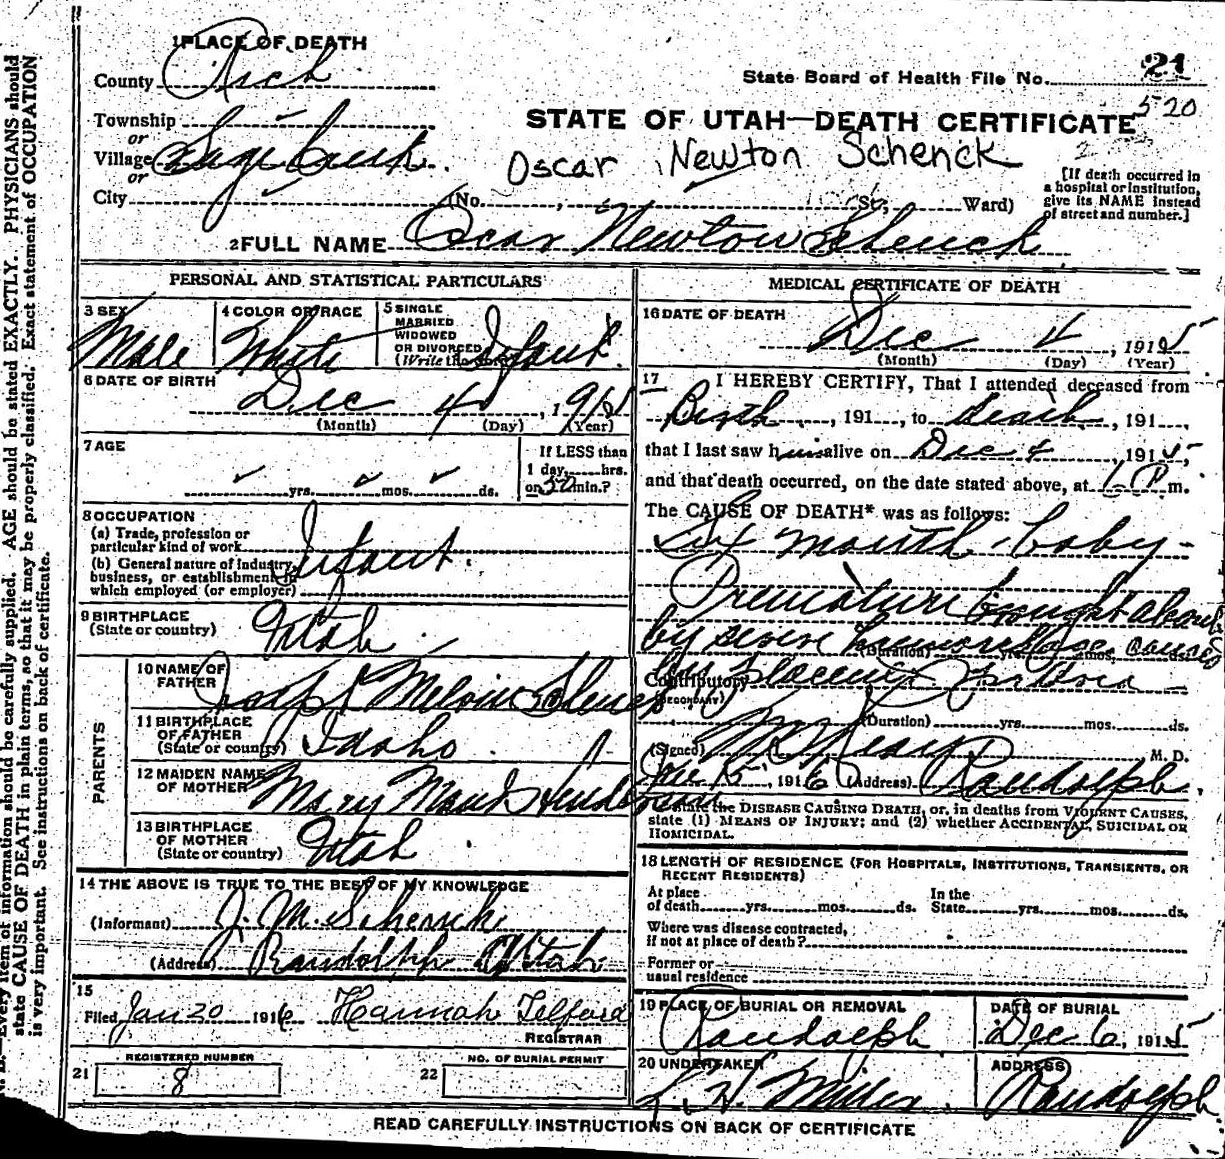 1 PLACE OF DEATH
County Rich
State Board of Health File No. 21
520
Township
or
Village Sage Creek
or
City
STATE OF UTAH—DEATH CERTIFICATE
2
Oscar Newton Schenck
[If death occurred in
a hospital or institution,
give its NAME instead
of street and number.]
(No. , St., Ward)
2 FULL NAME Oscar Newton Schenck
PERSONAL AND STATISTICAL PARTICULARS
3 SEX Male
4 COLOR OR RACE White
5 SINGLE
MARRIED
WIDOWED
OR DIVORCED
(Write the Infant
6 DATE OF BIRTH
Dec 4, 1915
(Month) (Day) (Year)
7 AGE
yrs. mos. ds.
If LESS than
1 day, hrs.
or 30 min.?
8 OCCUPATION
(a) Trade, profession or
particular kind of work
(b) General nature of industry,
business, or establishment in
which employed (or employer)
Infant
9 BIRTHPLACE
(State or country) Utah
PARENTS
10 NAME OF
FATHER Joseph Melvin Schenck
11 BIRTHPLACE
OF FATHER
(State or country) Idaho
12 MAIDEN NAME
OF MOTHER Mary Maud Henderson
13 BIRTHPLACE
OF MOTHER
(State or country) Utah
14 THE ABOVE IS TRUE TO THE BEST OF MY KNOWLEDGE
(Informant) J. M. Schenck
(Address) Randolph Utah
15
Filed Jan 20 1916 Hannah Telford
REGISTRAR
21 REGISTERED NUMBER
8
22 NO. OF BURIAL PERMIT
MEDICAL CERTIFICATE OF DEATH
16 DATE OF DEATH
Dec 4, 1915
(Month) (Day) (Year)
17 I HEREBY CERTIFY, That I attended deceased from
Birth, 191, to death, 191
that I last saw him alive on Dec 4 1915,
and that death occurred, on the date stated above, at 6 P m.
The CAUSE OF DEATH* was as follows:
Six month baby-
Premature brought about
by severe hemorrhage caused
(Duration) yrs. mos. ds.
Contributory by Placenta Praevia
(SECONDARY)
(Duration) yrs. mos. ds.
(Signed) M. D.
Jan 15, 1916 (Address) Randolph.
*State the DISEASE CAUSING DEATH, or, in deaths from VIOLENT CAUSES,
state (1) MEANS OF INJURY; and (2) whether ACCIDENTAL, SUICIDAL OR
HOMICIDAL.
18 LENGTH OF RESIDENCE (FOR HOSPITALS, INSTITUTIONS, TRANSIENTS, OR
RECENT RESIDENTS)
At place
of death yrs. mos. ds.
In the
State yrs. mos. ds.
Where was disease contracted,
if not at place of death?
Former or
usual residence
19 PLACE OF BURIAL OR REMOVAL
Randolph
DATE OF BURIAL
Dec 6, 1915
20 UNDERTAKER
Miller
ADDRESS
Randolph
READ CAREFULLY INSTRUCTIONS ON BACK OF CERTIFICATE
Every item of information should be carefully supplied. AGE should be stated EXACTLY. PHYSICIANS should
state CAUSE OF DEATH in plain terms, so that it may be properly classified. Exact statement of OCCUPATION
is very important. See instructions on back of certificate.